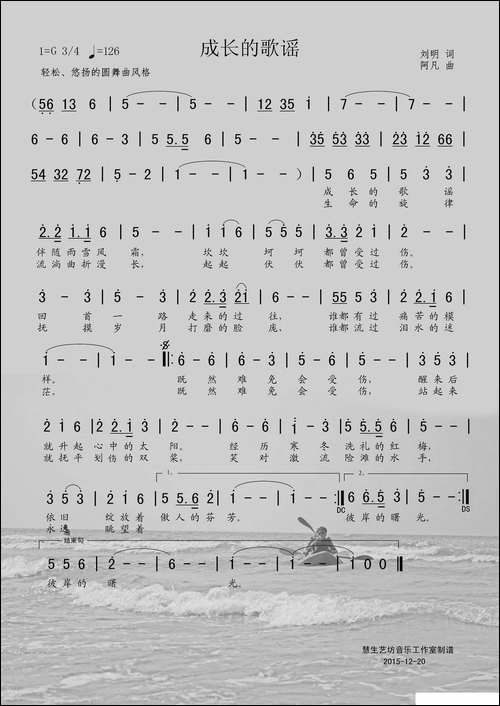 成长的歌谣
1=G 3/4 ♩=126
刘明 词
轻松、悠扬的圆舞曲风格
阿凡 曲
(56 13 6 | 5 - - | 5 - - | 12 35 i | 7 - - | 7 - - |
6 - 6 | 6 - 3 | 5 5.5 6 | 5 - - | 35 53 33 | 23 12 66 |
54 32 72 | 5 - 2 | 1 - - | 1 - - ) | 5 6 5 | 5 3 3 |
成 长 的 歌 谣
生 命 的 旋 律
2.2 1.1 6 | 5 - - | 1 1 6 | 5 5 5 | 3.3 2 1 | 6 - - |
伴随雨雪风 霜, 坎坎 坷坷 都曾受过 伤。
流淌曲折漫 长, 起起 伏伏 都曾受过 伤。
3 - 3 | 3 - 3 | 2 2.3 21 | 6 - - | 55 5 3 | 2 2.1 6 |
回 首 一 路 走来的过 往, 谁都有过 痛苦的模
抚 摸 岁 月 打磨的脸 庞, 谁都流过 泪水的迷
1 - - | 1 - - :6 - 6 | 6 - 3 | 2 3 2 | 5 - - | 3 5 3 |
样。 既 然 难 免 会 受 伤, 醒来后
茫。 既 然 难 免 会 受 伤, 站起来
2 1 6 | 2 2.1 3 | 2 - - | 6 - 6 | i - 3 | 5 5.5 3 | 2 - - |
就升起 心中的太 阳。 经 历 寒 冬 洗礼的红 梅,
就抚平 划伤的双 桨。 笑 对 激 流 险滩的水 手,
1.
2.
3 5 3 | 2 1 6 | 5 5.6 2 | 1 - - | 1 - - :6 6.5 3 | 5 - - :
DC
DS
依旧 绽放着 傲人的芬 芳。 彼岸的曙 光。
永远 眺望着
结束句
5 5 6 | 2 - - | 1 - - | 1 - - | 1 - - | 1 0 0 |
彼岸的 曙 光。
慧生艺坊音乐工作室制谱
2015-12-20